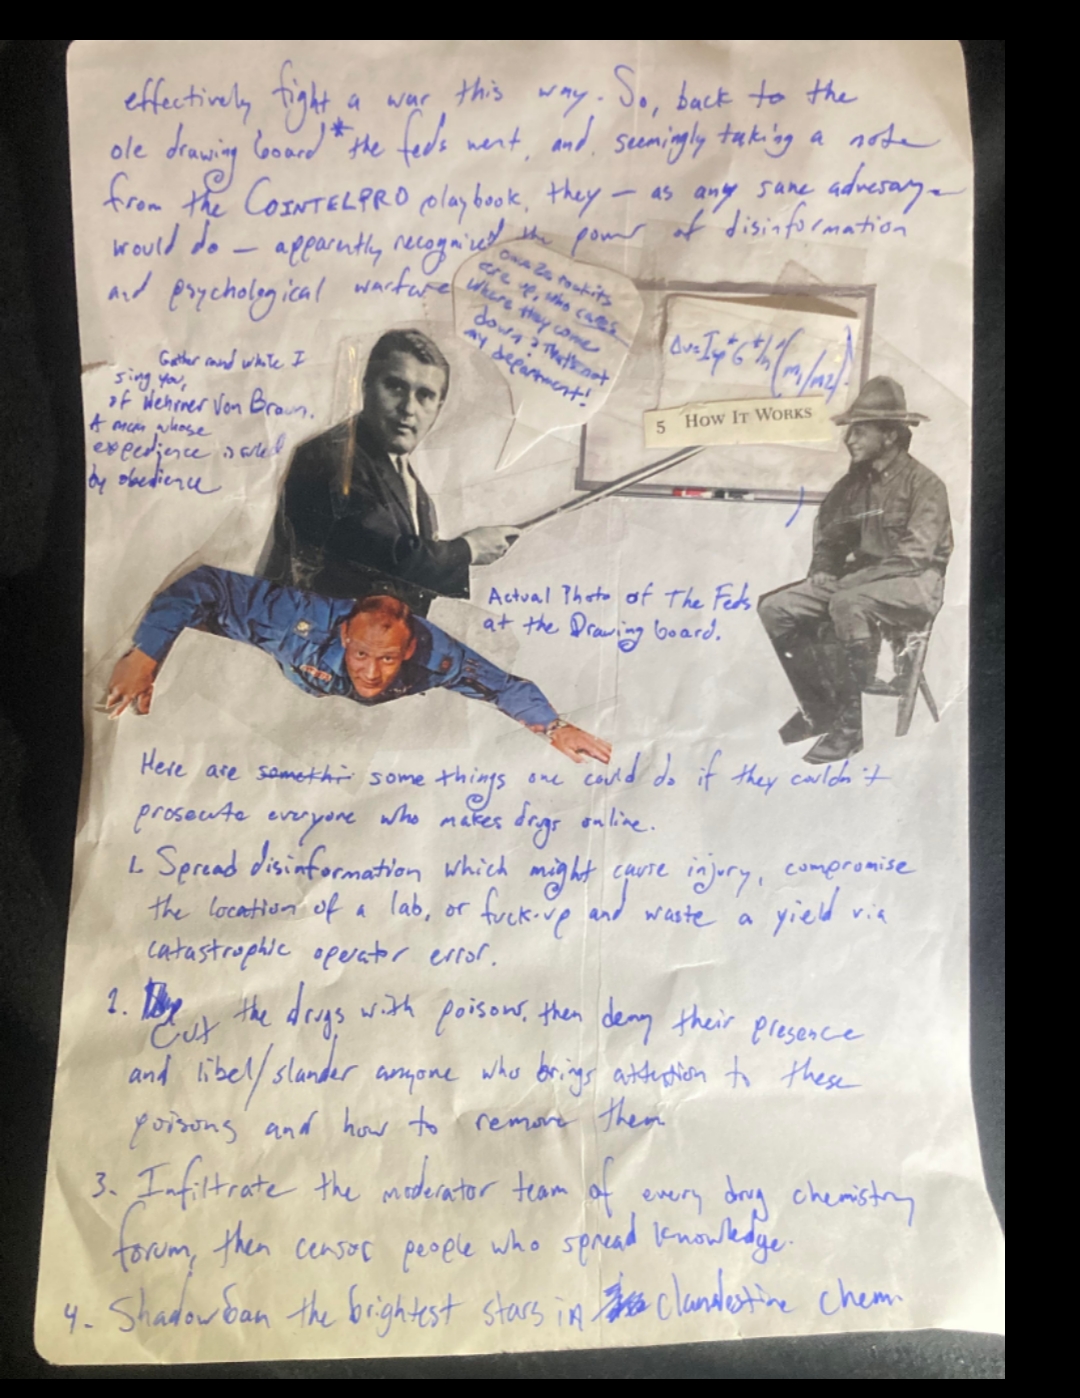 effectively fight a war this way. So, back to the
ole drawing board* the feds went, and, seemingly taking a note
from the COINTELPRO playbook, they — as any sane adversary
would do — apparently recognized the power of disinformation
and psychological warfare
Once the rockets
are up, who cares
where they come
down? That's not
my department!
5 HOW IT WORKS
Gather round while I
sing you,
of Wehrner Von Braun.
A man whose
expedience is ruled
by obedience
Actual Photo of The Feds
at the Drawing board.
Here are somethi some things one could do if they couldn't
prosecute everyone who makes drugs online.
1. Spread disinformation which might cause injury, compromise
the location of a lab, or fuck-up and waste a yield via
catastrophic operator error.
2. Cut the drugs with poisons, then deny their presence
and libel/slander anyone who brings attention to these
poisons and how to remove them
3. Infiltrate the moderator team of every drug chemistry
forum, then censor people who spread knowledge.
4. Shadowban the brightest stars in clandestine chem.